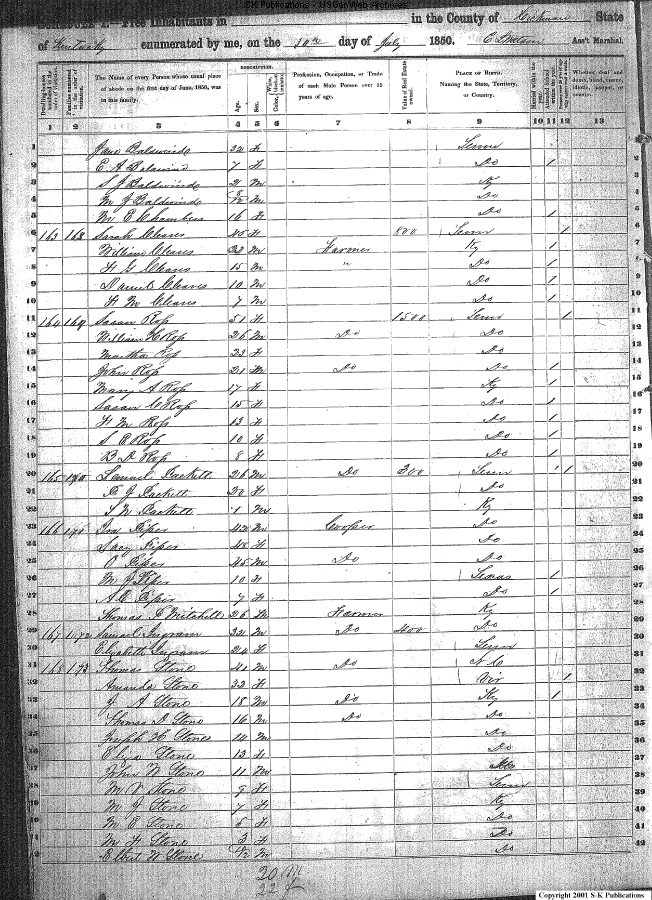 S-K Publications - USGenWeb Archives
Free Inhabitants in in the County of Hickman State
of Kentucky enumerated by me, on the 10th day of July 1850. Ass't Marshal.
DESCRIPTION.
The Name of every Person whose usual place of abode on the first day of June, 1850, was in this family.
Age. Sex. Color,
Profession, Occupation, or Trade of each Male Person over 15 years of age.
Value of Real Estate owned.
PLACE OF BIRTH. Naming the State, Territory, or Country.
Whether deaf and dumb, blind, insane, idiotic, pauper, or convict.
1 2 3 4 5 6 7 8 9 10 11 12 13
1 Jane Baldwin 32 f Tenn
2 E A Baldwin 7 f Do 1
3 S J Baldwin 2 m Ky
4 M J Baldwin m Do
5 M E Chambers 16 f Do 1
6 163 168 Sarah Cleaves 45 f 800 Tenn 1
7 William Cleaves m Farmer Ky 1
8 H G Cleaves 15 m " Do 1
9 Daniel Cleaves 10 m Do 1
10 H M Cleaves 7 m Do 1
11 164 169 Susan Ross 51 f 1500 Tenn 1
12 William H Ross 26 m Do Do
13 Martha Ross 23 f Do
14 John Ross 21 m Do Do 1
15 Mary A Ross 17 f Ky 1
16 Susan C Ross 15 f Do 1
17 H M Ross 13 f Do 1
18 S E Ross 10 f Do 1
19 B D Ross 8 f Do 1
20 165 170 Lemuel Puckett 26 m Do 300 Tenn 1 1
21 J Puckett 20 f Do
22 Puckett 1 m Ky
23 166 171 Piper 42 m Cooper Do
24 Lucy Piper 48 f Do
25 O Piper 45 m Do Do
26 M J Piper 10 f Texas 1
27 A E Piper 7 f Do 1
28 Thomas F Mitchell 26 m Farmer Ky
29 167 172 Samuel Ingram 32 m Do 400 Do
30 Elizabeth Ingram 24 f Tenn
31 168 173 Thomas Stone 41 m Do N C
32 Amanda Stone 32 f Vir 1
33 A Stone 18 m Do Ky 1
34 Thomas D Stone 16 m Do Do
35 Joseph Stone 14 m Do
36 Eliza Stone 13 f Do
37 John W Stone 11 m
38 M V Stone 9 f Tenn
39 M J Stone 7 f Ky
40 M E Stone 5 f Do
41 M H Stone 3 f Do
42 Elbert W Stone m Do
20 M
22 f
Copyright 2001 S-K Publications